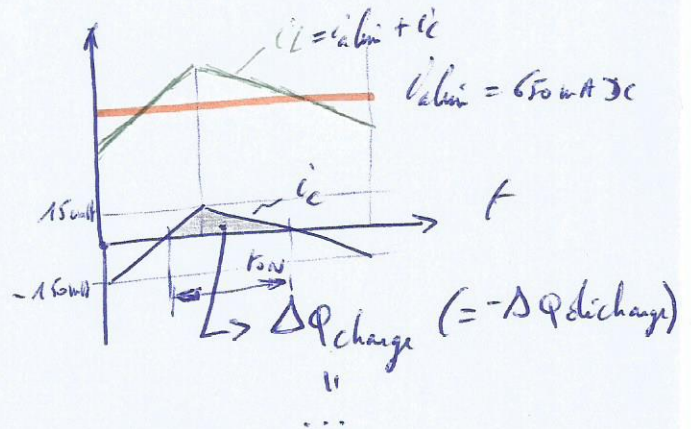 iL = ialim + ic
ialim = 650mA DC
15mA
ic
t
-150mA
tON
ΔQcharge (= -ΔQdécharge)
"
...